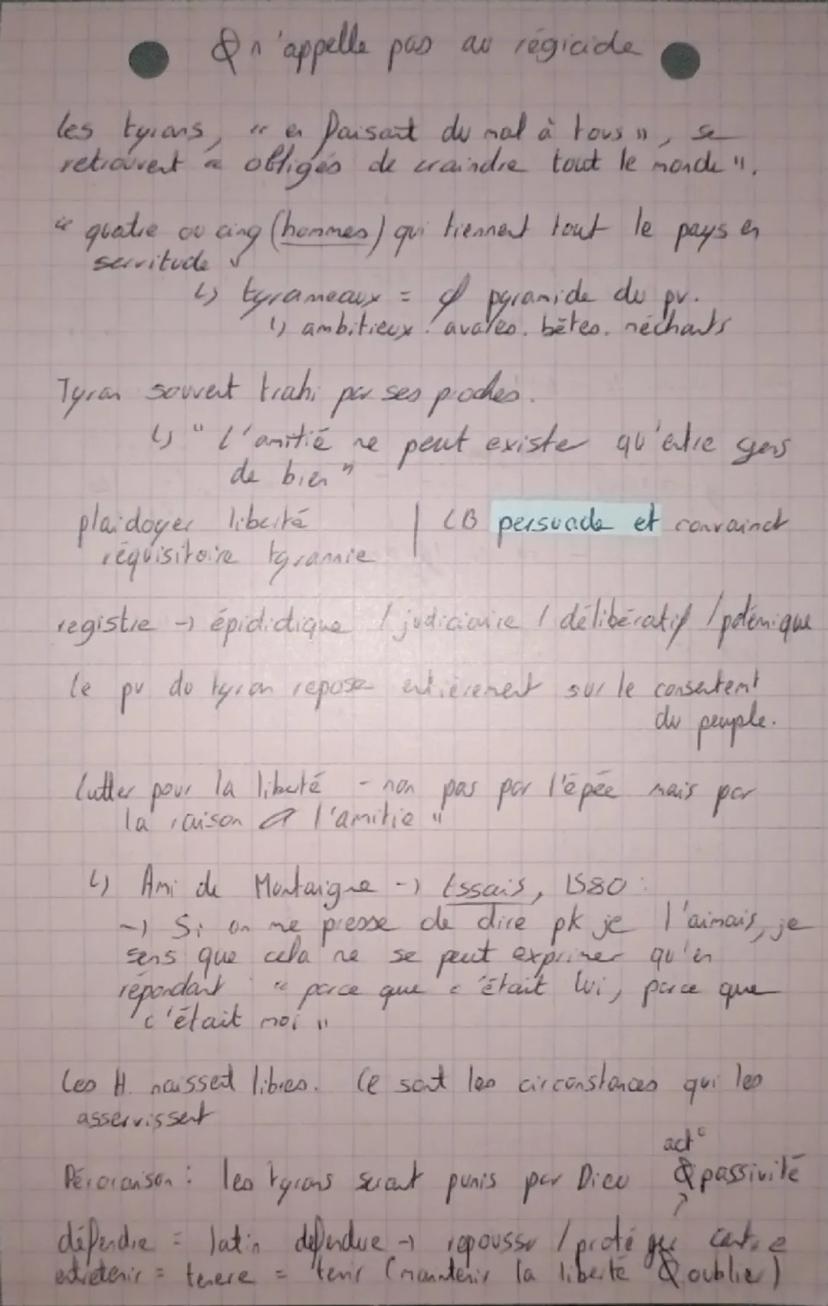 & n'appelle pas au régicide
les tyrans, " en faisant du mal à tous ", se
retrouvent " obligés de craindre tout le monde ".
" quatre ou cinq (hommes) qui tiennent tout le pays en
servitude "
↳ tyranneaux = pyramide du pv.
↳ ambitieux. avares. bêtes. méchants
Tyran souvent trahi par ses proches.
↳ " l'amitié ne peut exister qu'entre gens
de bien "
plaidoyer liberté | LB persuade et convainct
réquisitoire tyrannie
registre → épididtique / judiciaire / délibératif / polémique
le pv du tyran repose entièrement sur le consentent
du peuple.
lutter pour la liberté - non pas par l'épée mais par
la raison l'amitie "
↳ Ami de Montaigne → Essais, 1580 :
→ Si on me presse de dire pk je l'aimais, je
sens que cela ne se peut exprimer qu'en
répondant " parce que c'était lui, parce que
c'était moi "
les H. naissent libres. Ce sont les circonstances qui les
asservissent
act°
Péroraison : les tyrans seront punis par Dieu & passivité
défendre = latin defendere → repousser / protéger contre
entretenir = tenere = tenir (maintenir la liberté & oublier)